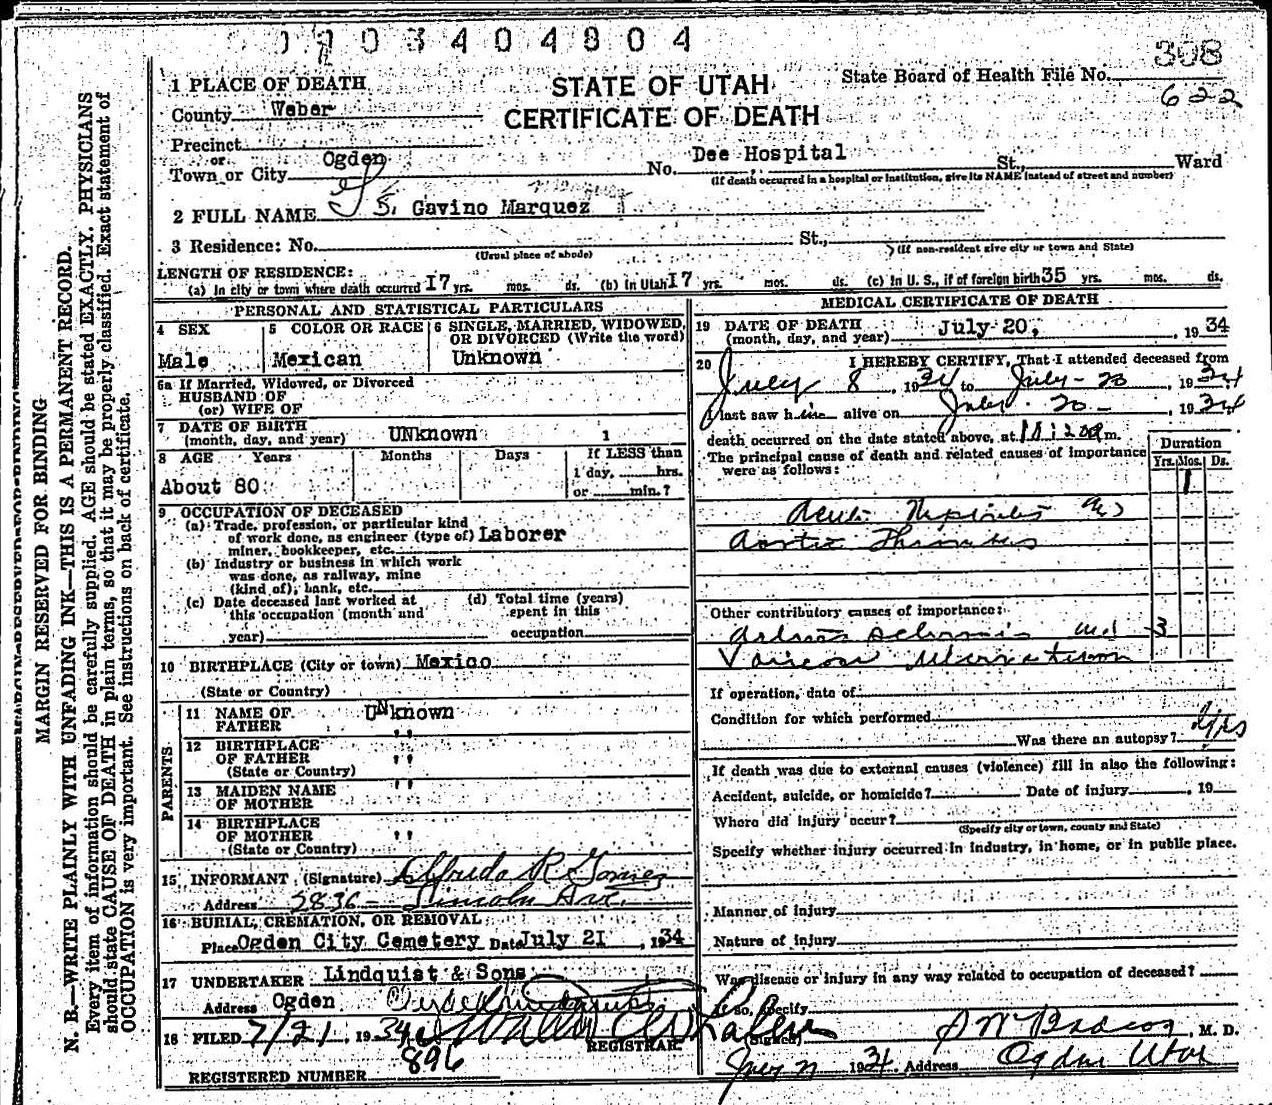 0 3 4 0 4 8 0 4
308
STATE OF UTAH
CERTIFICATE OF DEATH
State Board of Health File No.
622
1 PLACE OF DEATH
County Weber
Precinct
or
Town or City Ogden No. Dee Hospital St., Ward
(If death occurred in a hospital or institution, give its NAME instead of street and number)
2 FULL NAME S. Gavino Marquez
3 Residence: No. St.,
(Usual place of abode) (If non-resident give city or town and State)
LENGTH OF RESIDENCE:
(a) In city or town where death occurred 17 yrs. mos. ds. (b) In Utah 17 yrs. mos. ds. (c) In U. S., if of foreign birth 35 yrs. mos. ds.
MARGIN RESERVED FOR BINDING
N. B.—WRITE PLAINLY WITH UNFADING INK—THIS IS A PERMANENT RECORD.
Every item of information should be carefully supplied. AGE should be stated EXACTLY. PHYSICIANS
should state CAUSE OF DEATH in plain terms, so that it may be properly classified. Exact statement of
OCCUPATION is very important. See instructions on back of certificate.
PERSONAL AND STATISTICAL PARTICULARS
4 SEX
Male
5 COLOR OR RACE
Mexican
6 SINGLE, MARRIED, WIDOWED,
OR DIVORCED (Write the word)
Unknown
6a If Married, Widowed, or Divorced
HUSBAND OF
(or) WIFE OF
7 DATE OF BIRTH
(month, day, and year) UNknown 1
8 AGE Years Months Days If LESS than
1 day, hrs.
or min.?
About 80
9 OCCUPATION OF DECEASED
(a) Trade, profession, or particular kind
of work done, as engineer (type of) Laborer
miner, bookkeeper, etc.
(b) Industry or business in which work
was done, as railway, mine
(kind of), bank, etc.
(c) Date deceased last worked at
this occupation (month and
year)
(d) Total time (years)
spent in this
occupation
10 BIRTHPLACE (City or town) Mexico
(State or Country)
PARENTS
11 NAME OF
FATHER UNknown
12 BIRTHPLACE
OF FATHER " "
(State or Country)
13 MAIDEN NAME
OF MOTHER " "
14 BIRTHPLACE
OF MOTHER " "
(State or Country)
15 INFORMANT (Signature) Alfredo R Gomez
Address 2836 - Lincoln Ave.
16 BURIAL, CREMATION, OR REMOVAL
Place Ogden City Cemetery Date July 21, 1934
17 UNDERTAKER Lindquist & Sons
Address Ogden
18 FILED 7/21, 1934
REGISTRAR
REGISTERED NUMBER 896
MEDICAL CERTIFICATE OF DEATH
19 DATE OF DEATH
(month, day, and year) July 20, 1934
20 I HEREBY CERTIFY, That I attended deceased from
July 8 1934 to July - 20, 1934
I last saw him alive on July - 20 -, 1934
death occurred on the date stated above, at m.
The principal cause of death and related causes of importance
were as follows:
Duration
Yrs. Mos. Ds.
1
Acute
Aortic Thrombus
Other contributory causes of importance:
3
Varicose ulceration
If operation, date of
Condition for which performed
Was there an autopsy? yes
If death was due to external causes (violence) fill in also the following:
Accident, suicide, or homicide? Date of injury , 19
Where did injury occur?
(Specify city or town, county and State)
Specify whether injury occurred in industry, in home, or in public place.
Manner of injury
Nature of injury
Was disease or injury in any way related to occupation of deceased?
If so, specify
(Signed) , M. D.
1934 Address Ogden Utah